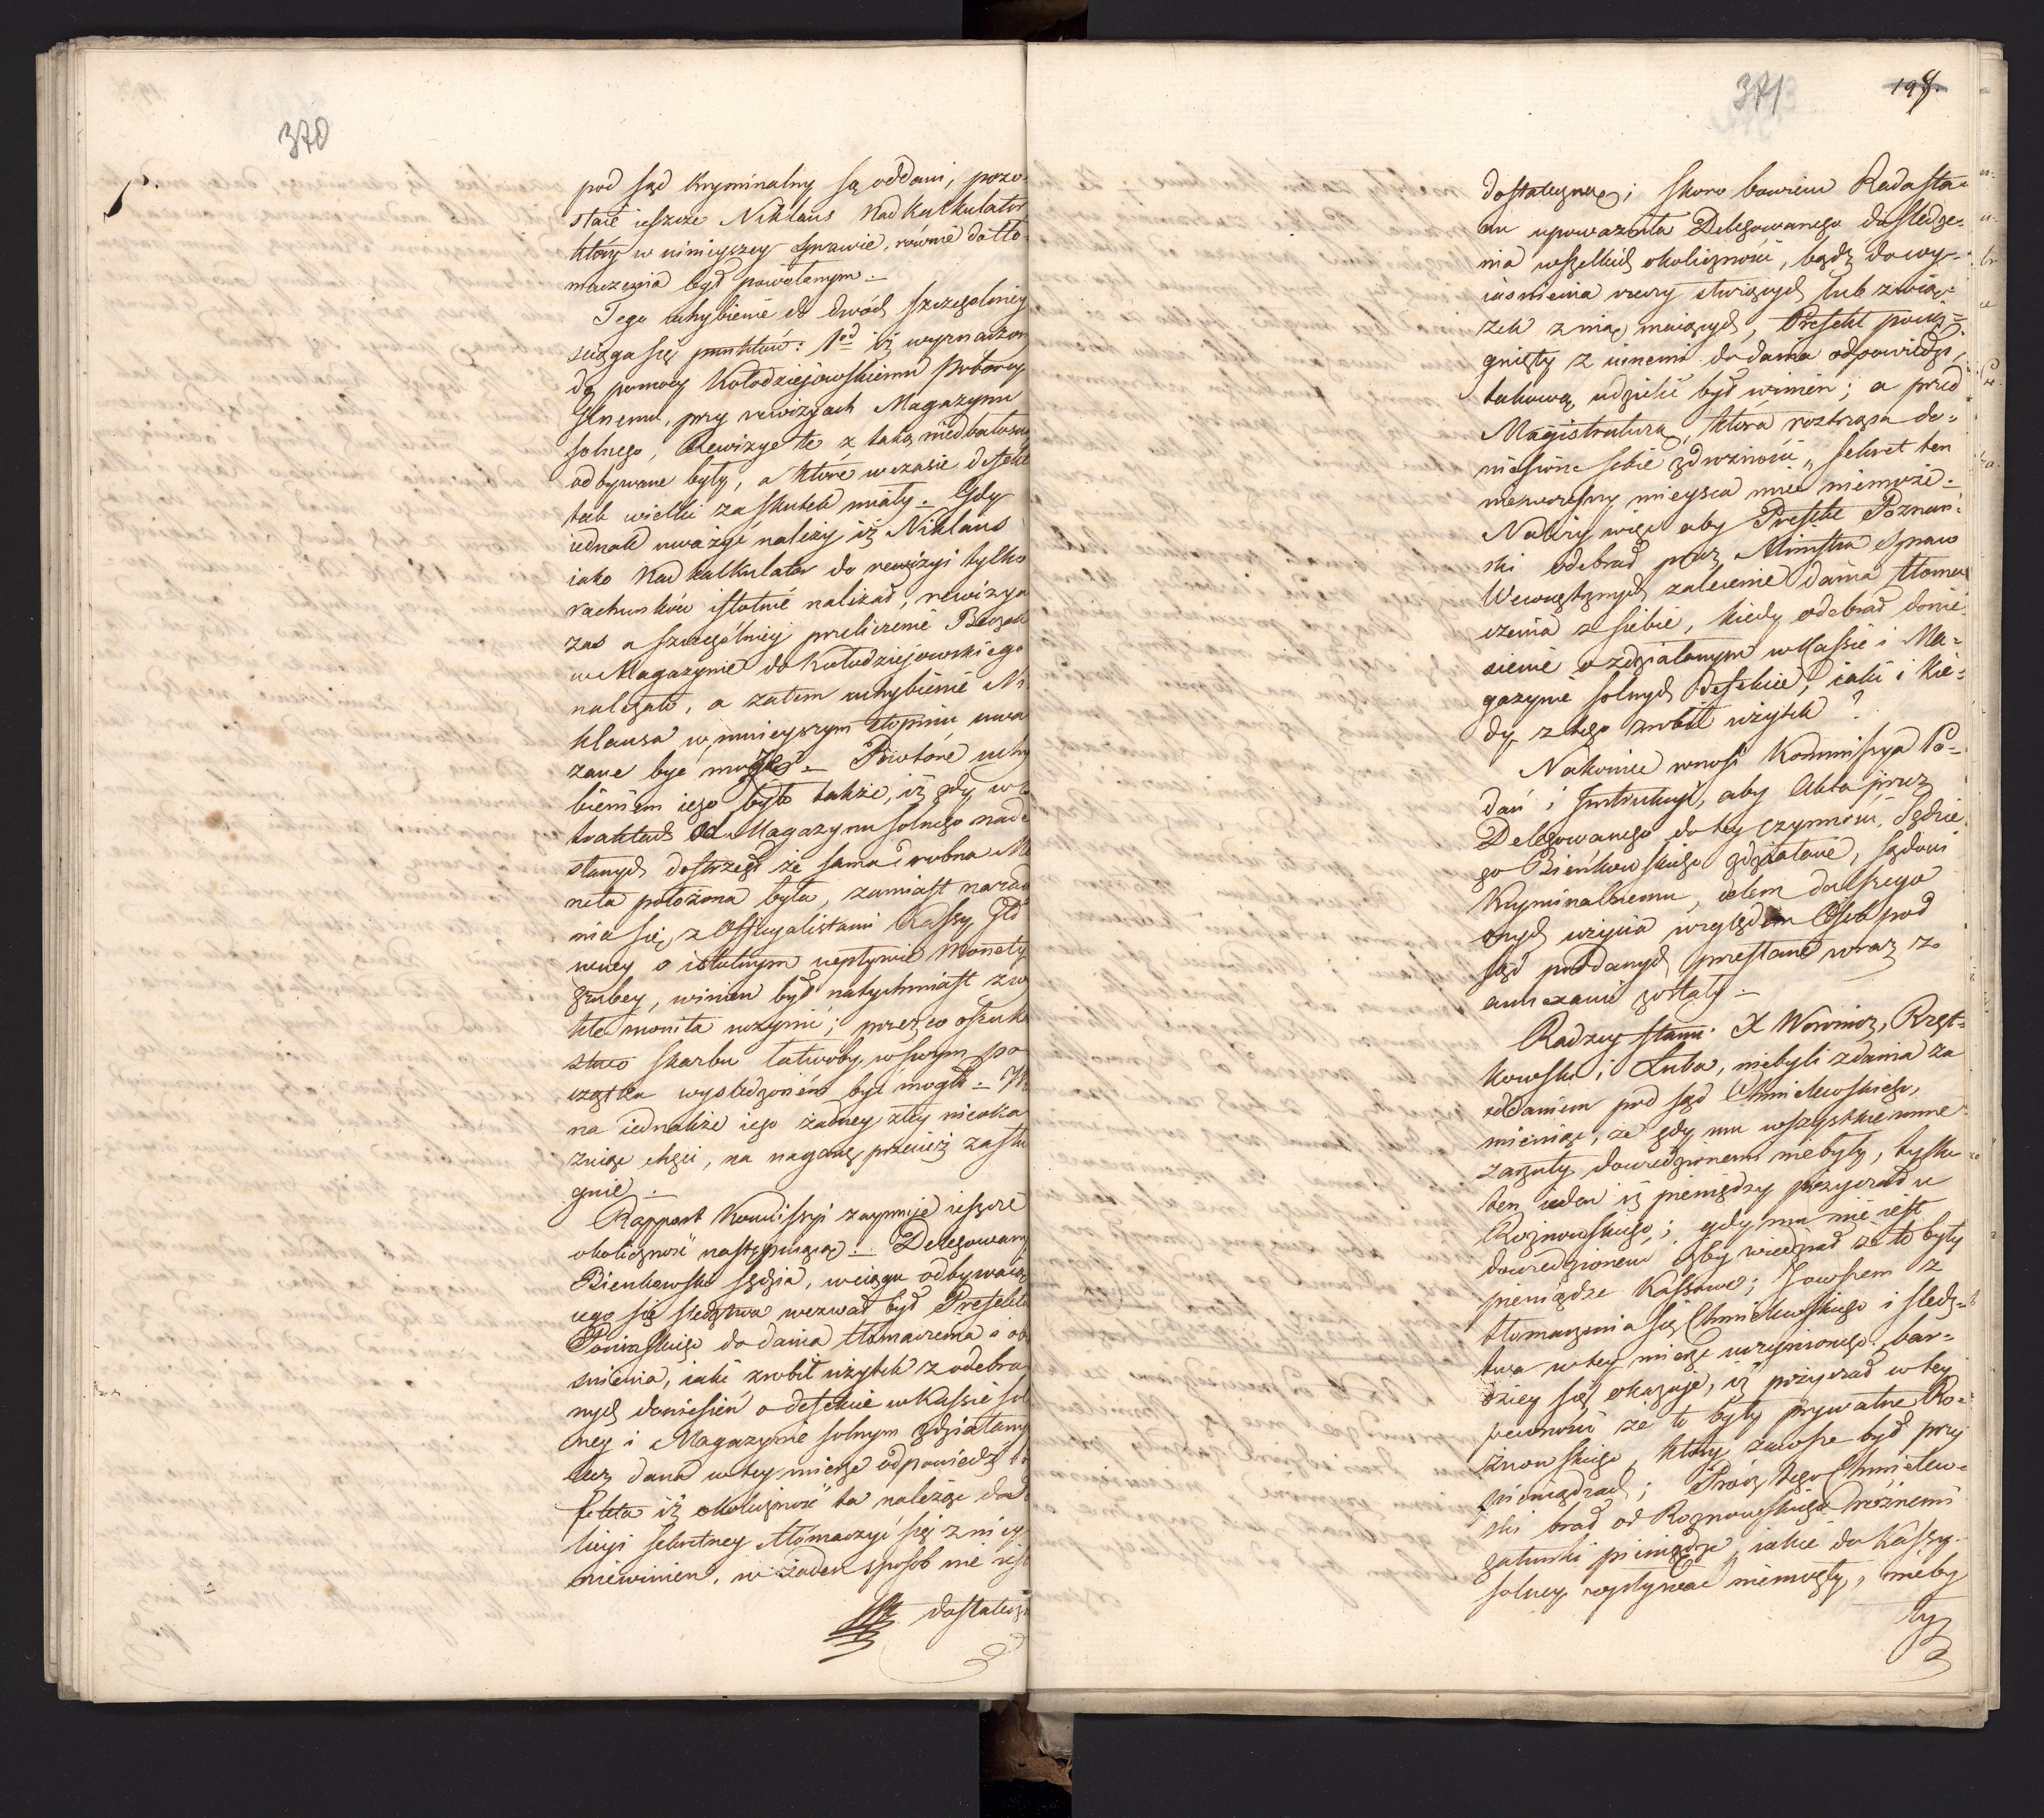 370
pod sąd kryminalny są oddani, pozo-
staie ieszcze Niklaus Nadkalkulator
który w ninieyszey sprawie, równie do tło-
maczenia był powołanym. –
Tego uchybienie do dwóch szczegolniey
sciąga się punktów: 1od iż wyznaczon
do pomocy Kołodziejowskiemu Poborcy
solnemu, przy rewizyach Magazynu
solnego, Rewizye te z taką niedbałosci
odbywane były, a które w czasie defekt
tak wielki za skutek miały. – Gdy
iednak uważyć należy iż Niklaus
iako Nadkalkulator do rewizyi tylko
rachunków istotnie należał, rewizya
zas a szczególniey przeliczenie Beczek
w Magazynie do Kołodziejowskiego
należało, a zatem uchybienie Ni
klausa w mnieyszym stopniu uwa
zane bydź może. – Powtóre uchy
bieniem iego było także, iż gdy w
traktach od Magazynu solnego nade
słanych dostrzegł że sama drobna Mo
neta położona była, zamiast narad
nia się z Officyalistami Kassy Głó
wney o istotnym wpływie Monety
grubey, winien był natychmiast zwy
kłe monita uczynić; przez co oszuka
stwo skarbu łatwoby w swym po
czątku wysledzonem być mogło. –
na iednakże iego żadney złey nieoka
zuiąc chęci, na naganę przecież zasłu
guie. –
Rapport Kommissyi zaymuie ieszcze
okoliczność następuiącą. – Delegowany
Bienkowski sędzia, w ciągu odbywaią
cego się sledztwa wezwał był Prefekta
Ponińskiego do dania tłomaczenia i ob
snienia, iaki zrobił użytek z odebra
nych doniesień o defekcie w Kassie sol
ney i Magazynie solnym zdziałanym
lecz dana w tey mierze odpowiedź
fekta iż okoliczność ta należąc do
licyi sekretney tłomaczyć się z niey
niewinien, w żaden sposób nie iest
dostateczn
371
198.
dostateczną; skoro bowiem Rada sta-
nu upoważniła Delegowanego do sledze-
nia wszelkich okoliczności, bądź do wy-
iasnienia rzeczy służących lub zwią-
zek z nią maiących, Prefekt pocią-
gnięty z innemi do dania odpowiedzi,
takową udzielić był winien; a przed
Magistraturą, która roztrząsa do-
niesione sobie zdrożności, sekret ten
niewczesny mieysca mieć niemoże. –
Należy więc aby Prefekt Poznań-
ski odebrał przez Ministra Spraw
Wewnętrznych zalecenie dania tłoma
czenia z siebie, kiedy odebrał donie-
sienie o zdziałanym w Kassie i Ma-
gazynie solnych defekcie, iaki i kie-
dy z tego zrobił użytek?
Nakoniec wnosi Kommissya Po-
dań i Instrukcyi, aby Akta przez
Delegowanego do tey czynności, Sędzie
go Bieńkowskiego zdziałane, sądowi
Kryminalnemu, celem dalszego
onych użycia względem Osob pod
sąd poddanych przesłane wraz z
annexami zostały. –
Radzcy stanu X Woronicz, Rząt-
kowski i Luba, niebyli zdania za
oddaniem pod sąd Chmielewskiego,
mieniąc, że gdy mu wszystkie inne
zarzuty dowiedzionemi niebyły, tylko
ten ieden iż pieniędzy pożyczał u
Rożnowskiego; gdy mu nie iest
dowiedzionem żeby wiedział że to były
pieniądze Kassowe; Zowszem z
tłomaczenia się Chmielewskiego i sledz-
twa w tey mierze uczynionego, bar-
dziey się okazuje, iż pożyczał w tey
pewności że to były prywatne Ro-
żnowskiego, który zawsze był przy
pieniądzach; Prócz tego Chmielew-
ski brał od Rożnowskiego różnemi
gatunki pieniądze, iakie do Kassy
solney wpływać niemogły, nieby
ły